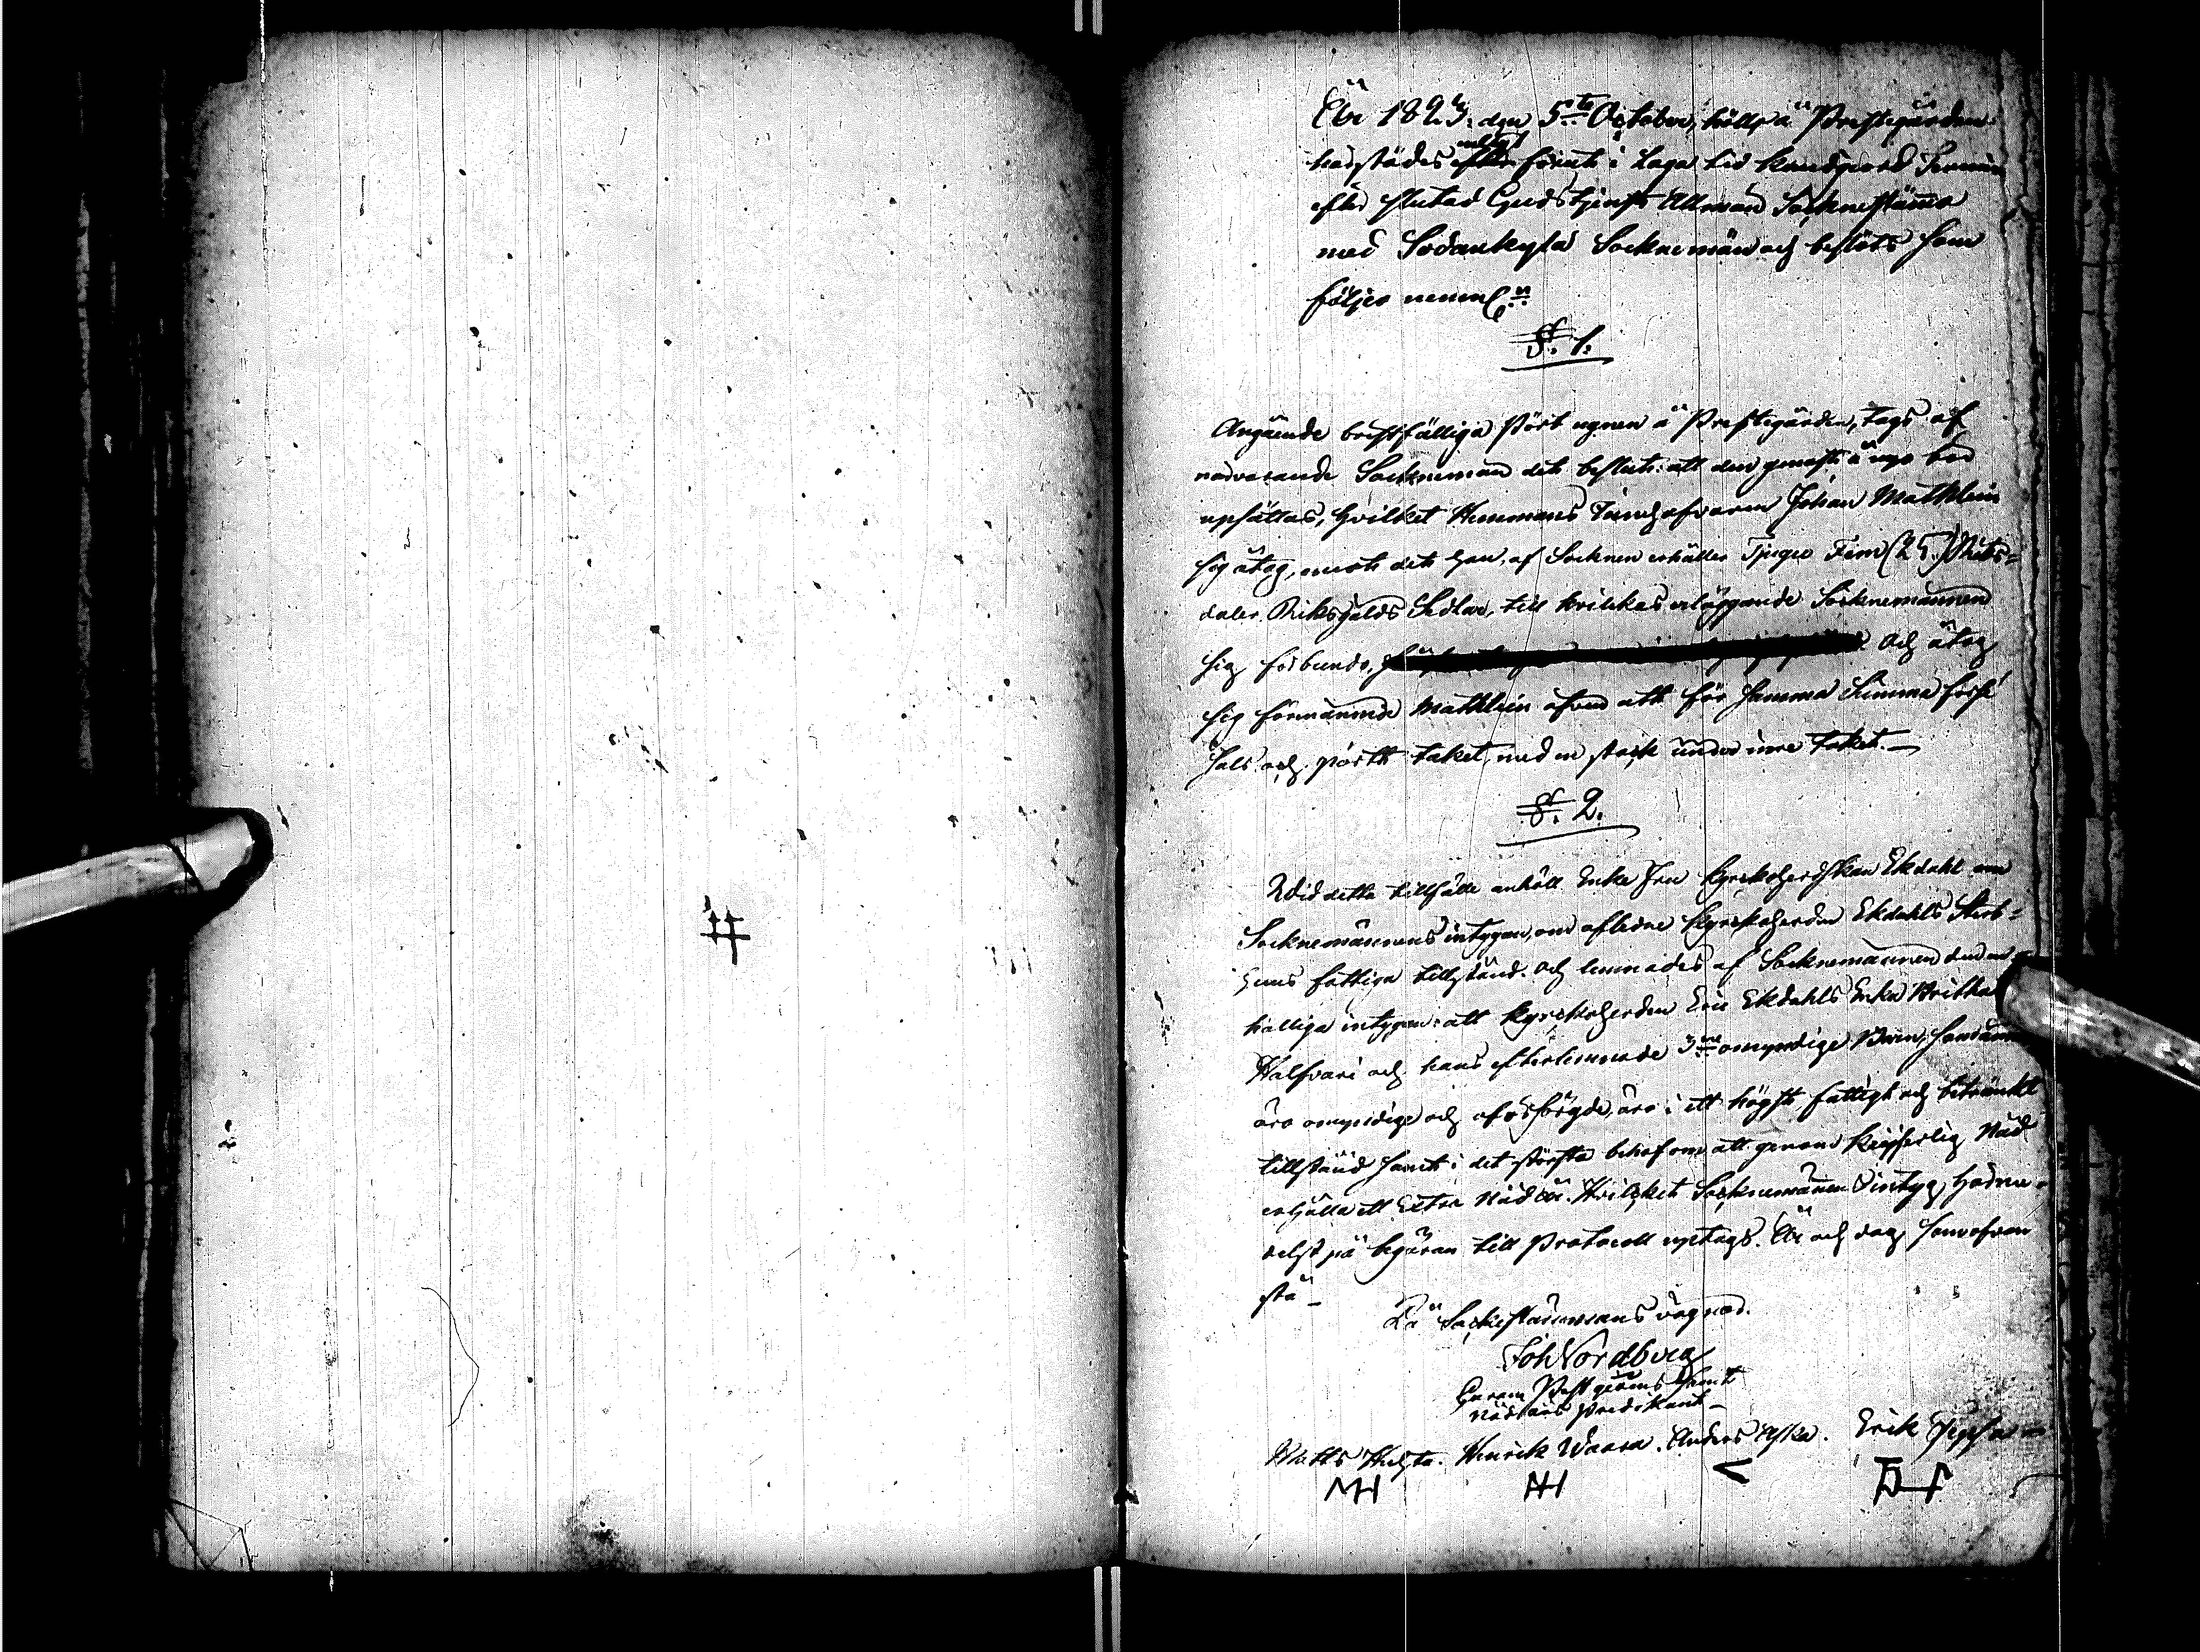 År 1823. den 5te October, hölls å Prestegården
härstädes enligt förut i Laga tid kundgjord Termin
efter slutad Gudstjenst Allmän Sockenstämma
med Sodankylä Socknemän och beslöts som
följer neml:n
§. 1.
Angående bristfälliga Pört ugnen å Prestegården, togs af
närvarande Sockneman det beslut: att den genast å nyo bör
upsättas, hvilket Hemmans Innehafvaren Johan Mathlein
sig åtog, emot det han, af Socknen erhåller Tjugu Fem (25.) Riks-
daler Riksgälds Sedlar, till hvilkas erläggande Socknemännen
sig förbundo, och åtog
sig förenämnde Mathlein äfven att för samma Summa förse
och pört taket, med en stock under inre taket.
§. 2.
Wid detta tillfälle anhöll Enke Fru Kyrkoherdskan Ekdahl om
Socknemännens intygan, om aflidne Kyrkoherden Ekdahls Sterb-
hus fattiga tillstånd. Och lemnades af Socknemännen den
intygan: att Kyrkoherden Eric Ekdahls Enka
och hans efterlemnade 3ne omyndige Barn, som ännu
äro omyndige och oförsörgde, äro i ett högst fattigt och betränkt
tillstånd samt i det största behof om att genom Kejserlig Nåd
erhålla ett Extra Nåd år. Hvilket Socknemännens intyg, härme-
delst på begäran till Protocoll uptags. År och dag som ofvan
stå
På Sockenstämmans vägnar.
Joh Nordberg
samt
Nådårs Predikant
Matts Henrik Waara. Anders Erik
MH HH < EJ
#